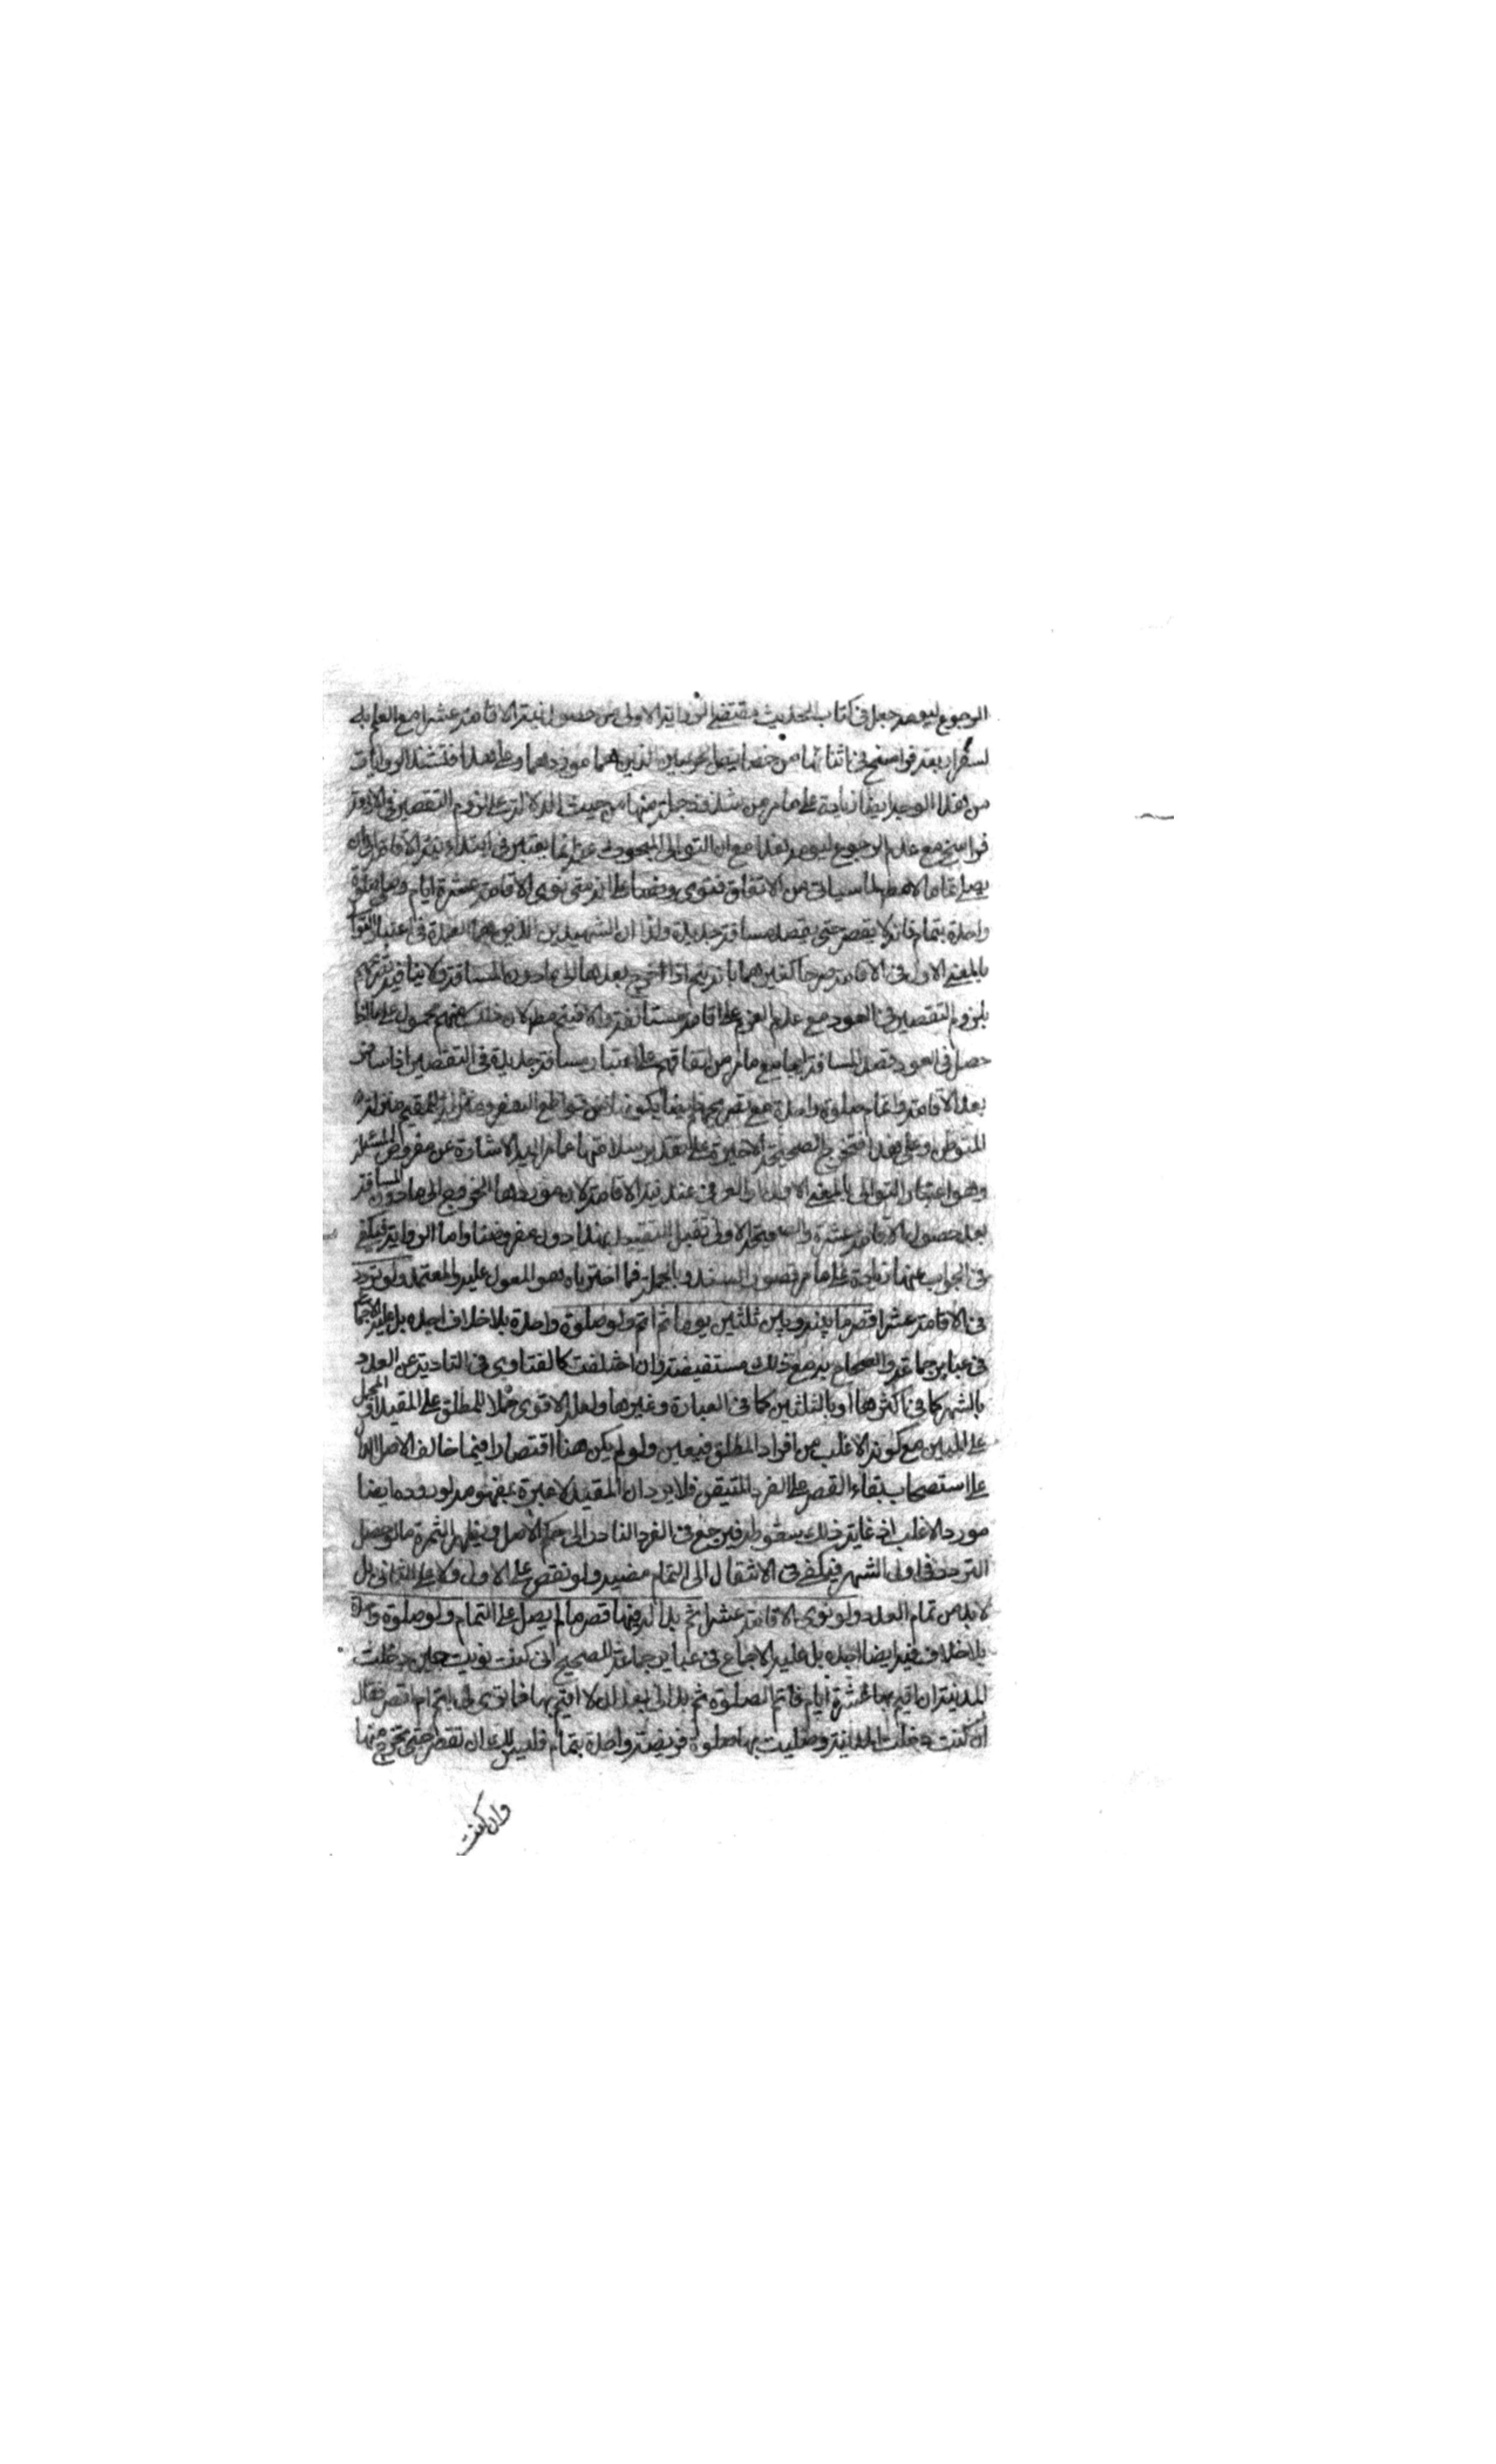 الرجوع ليومه جعل في كتاب الحديث مقتضى الرواية الاولى من حصول نية الاقامة عشرا مع العلم بل
فراسخ في اثنائها من خصايص الحرمين الذين هما موردهما وعلى هذا فتشذ الروايات
من هذا الوجه ايضا زيادة على ما مر من شذوذ جملة منها من حيث الدلالة على لزوم التقصير في الاربعة
فراسخ مع عدم الرجوع ليومه هذا مع ان التوالي المبحوث عنه انما يعتبر في ابتداء نية الاقامة
يصلي تماما لا مطم لما سياتي من الاتفاق فتوى ونصا على انه متى نوى الاقامة عشرة ايام وصلى صلوة
واحدة بتمام فانه لا يقصر حتى يقصد مسافة جديدة ولذا ان الشهيدين الذين هما العمدة في اعتبار التوالي
بالمعنى الاول في الاقامة صرحا كغيرهما بانه يتم اذا خرج بعدها الى ما دون المسافة ولا ينافيه
بلزوم التقصير في العود مع عدم العزم على اقامة مستانفة والا فيتم مطم لان ذلك منهم محمول على ما اذا
حصل في العود قصد المسافة مع ما مر من اتفاقهم على اعتبار مسافة جديدة في التقصير اذا سافر
بعد الاقامة واتمام صلوة واحدة مع تصريحهم ايضا بكونها من قواطع السفر ومنزلة المقيم منزلة
المتوطن وعلى هذا فتخرج الصحيحة الاخيرة على تقدير سلامتها عما مر اليه الاشارة عن مفروض المسئلة
وهو اعتبار التوالي بالمعنى الاول او العرفي عند نية الاقامة لان موردها الخروج الى ما دون المسافة
بعد حصول الاقامة عشرة والصحيحة الاولى تقبل التقييد بهذا دون مفروضنا واما الرواية فيكفي
في الجواب عنها زيادة على ما مر قصور السند وبالجملة فما اخترناه هو المعول عليه والمعتمد ولو تردد
في الاقامة عشرا قصر ما بينه وبين ثلثين يوما ثم اتم ولو صلوة واحدة بلا خلاف اجده بل عليه الاجماع
في عباير جماعة والصحاح به مع ذلك مستفيضة وان اختلفت كالفتاوى في التادية عن العدد
بالشهر كما في اكثرها او بالثلثين كما في العبارة وغيرها ولعله الاقوى حملا للمطلق على المقيد او المجمل
على المبين مع كونه الاغلب من افراد المطلق فيتعين ولو لم يكن هنا اقتصارا فيما خالف الاصل الدال
على استصحاب بقاء القصر على الفرد المتيقن فلا يرد ان المقيد لا عبرة بمفهومه لوروده ايضا
مورد الاغلب اذ غاية ذلك سقوط فيرجع في الفرد النادر الى حكم الاصل ويظهر الثمرة ما لو حصل
التردد في اول الشهر فيكفي في الانتقال الى التمام مضيه ولو نقص على الاول ولا على الثاني بل
لا بد من تمام العدد ولو نوى الاقامة عشرا ثم بدا له فيها قصر ما لم يصل على التمام ولو صلوة واحدة
بلا خلاف فيه ايضا اجده بل عليه الاجماع في عباير جماعة للصحيح اني كنت نويت حين دخلت
المدينة ان اقيم بها عشرة ايام فاتم الصلوة ثم بدا لي بعد ان لا اقيم بها فما ترى لي اتم ام اقصر فقال
ان كنت دخلت المدينة وصليت بها صلوة فريضة واحدة بتمام فليس لك ان تقصر حتى تخرج منها
وان كنت